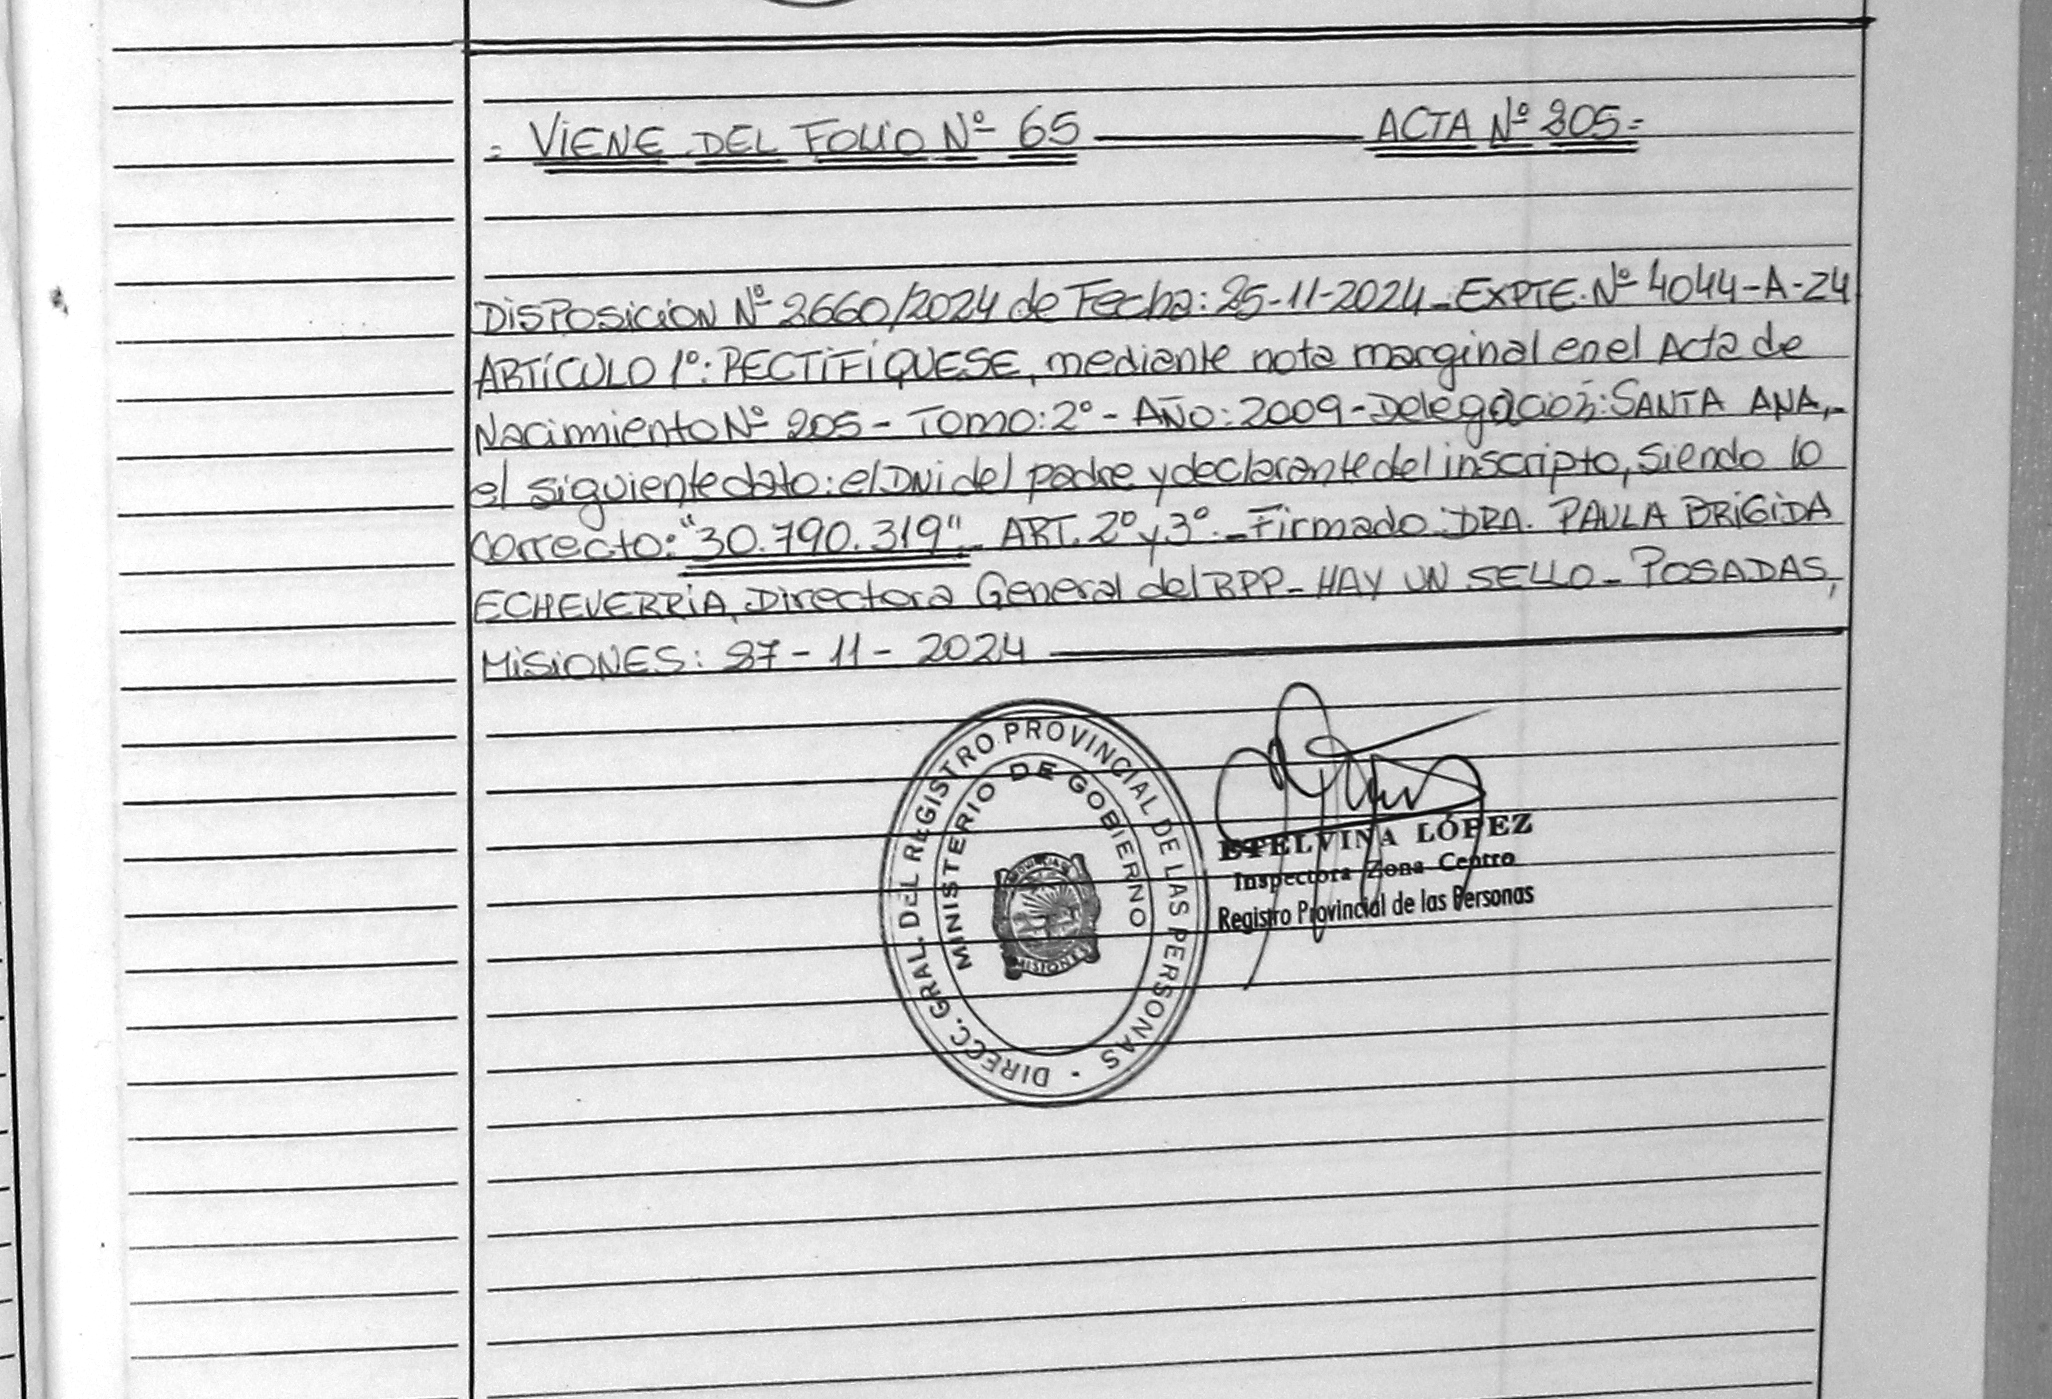 = VIENE DEL FOLIO Nº 65 ACTA Nº 205=
DISPOSICION Nº 2660/2024 de Fecha: 25-11-2024 - EXPTE. Nº 4044-A-24
ARTÍCULO 1º: RECTIFÍQUESE, mediante nota marginal en el Acta de
Nacimiento Nº 205 - Tomo: 2º - AÑO: 2009 - Delegación: SANTA ANA,-
el siguiente dato: el DNI del padre y declarante del inscripto, siendo lo
correcto: "30.790.319" - ART. 2º y 3º - Firmado: DRA. PAULA BRIGIDA
ECHEVERRIA, Directora General del RPP - HAY UN SELLO - POSADAS,
MISIONES: 27 - 11 - 2024
DIRECC. GRAL. DEL REGISTRO PROVINCIAL DE LAS PERSONAS ·
MINISTERIO DE GOBIERNO
MISIONES
ETELVINA LÓPEZ
Inspectora Zona Centro
Registro Provincial de las Personas